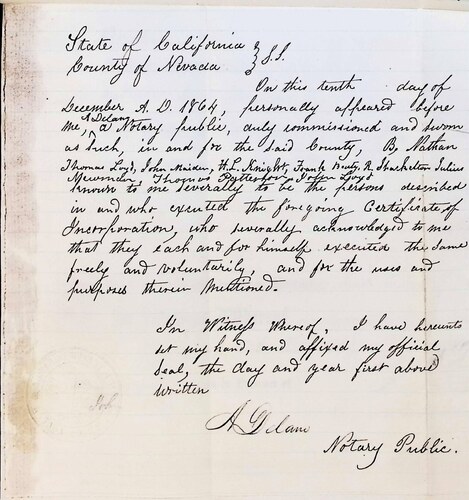 State of California } S.S.
County of Nevada
On this tenth day of
December A. D. 1864, personally appeared before
me A Delano a Notary public, duly commissioned and sworn
as such, in and for the said County, B. Nathan
Thomas Loyd, John Maiden, H. L. Knight, Frank Beuty, R. Shackelton Julius
Thomas Patterson John Loyd
known to me severally to be the persons described
in and who excuted the foregoing Certificate of
Incorporation, who severally acknowledged to me
that they each and for himself executed the same
freely and voluntarily, and for the uses and
purposes therein mentioned.
In Witness Whereof, I have hereunto
set my hand, and affixed my official
Seal, the day and year first above
written
A Delano
Notary Public.